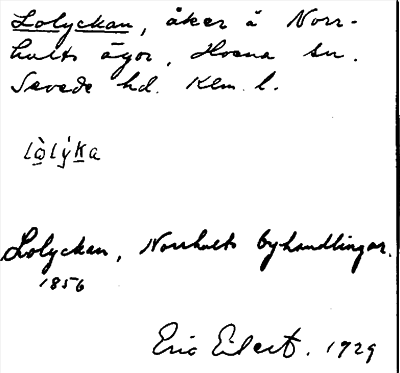 Lolyckan, åker å Norr-
hults ägor, Hvena sn.
Sevede hd. Klm. l.
lò̠lýk̠a
Lolyckan, Norrhults byhandlingar.
1856
Eric Elert. 1929